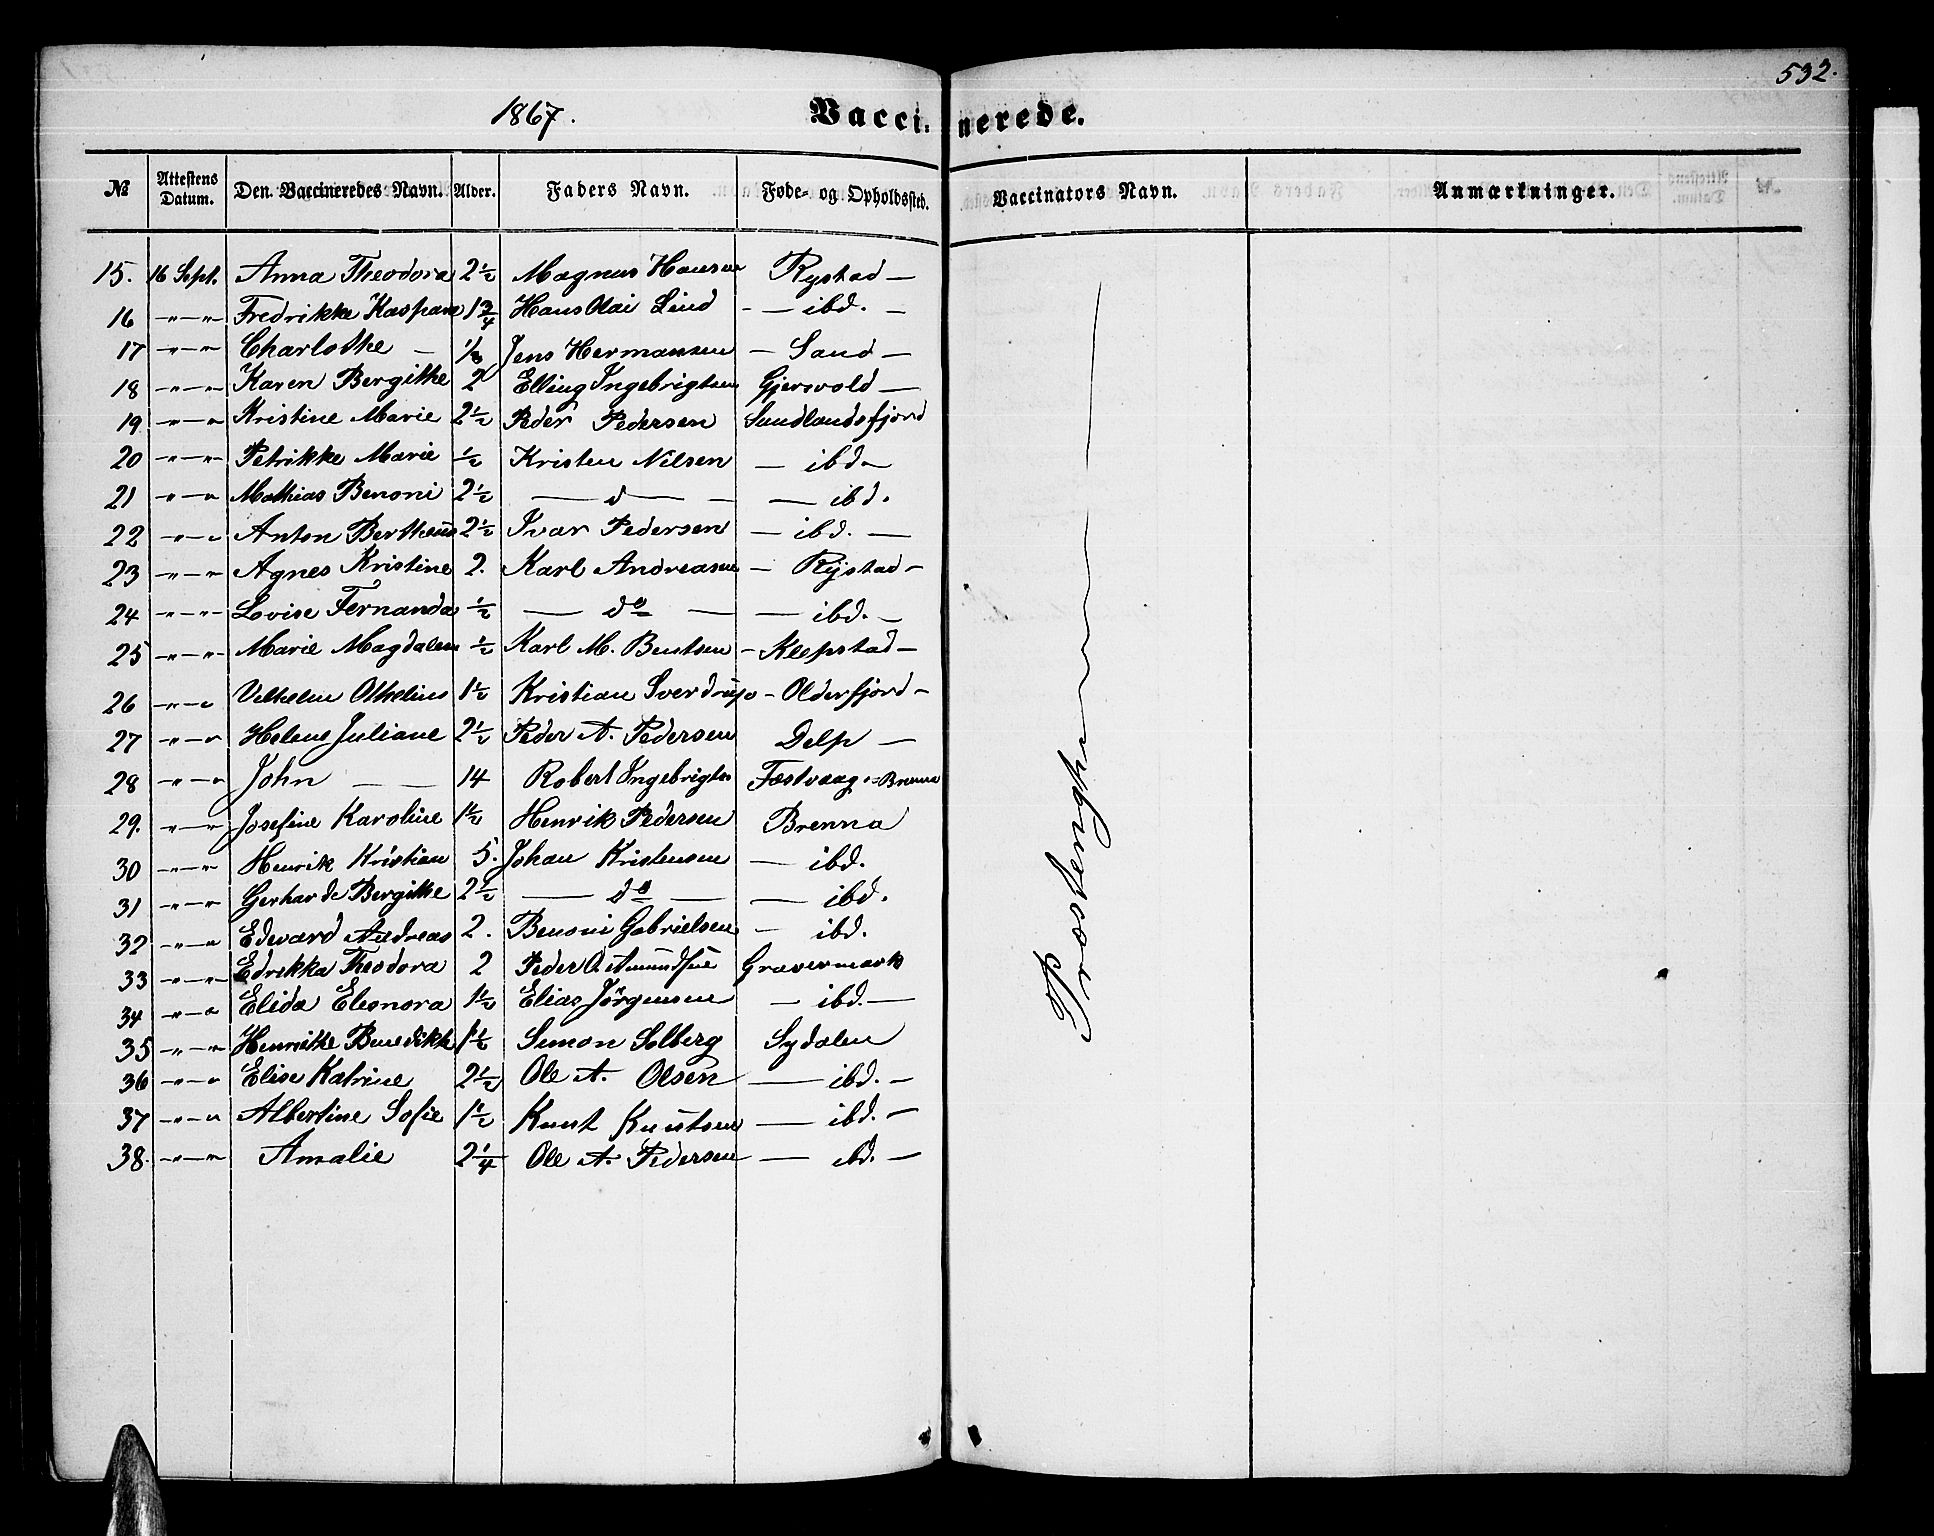 532.
1867. Vaccinerede.
№ Attestens Datum. Den Vaccineredes Navn. Alder. Faders Navn. Føde- og Opholdssted. Vaccinators Navn. Anmærkninger.
15. 16 Sept. Anna Theodora 2 1/2 Magnus Hansen Rystad —
16 -"-"- Fredrikke Kaspara 1 3/4 Hans Olai Lind - — ibd. —
17 -"-"- Charlothe — Jens Hermansen — Sand —
18 -"-"- Karen Bergithe 2 Elling Ingebrigtsen Gjersvold —
19 -"-"- Kristine Marie 2 1/2 Peder Pedersen Sundlandsfjord
20 -"-"- Petrikke Marie 1/2 Kristen Nilsen — ibd —
21 -"-"- Mathias Benoni 2 1/2 — d — — — ibd.
22 -"-"- Anton Bertheus 2 1/2 Ivar Pedersen — ibd. —
23 -"-"- Agnes Kristine 2. Karl Andreasen — Rystad —
24 -"-"- Lovise Fernanda 1/2 — do — — ibd. —
25 -"-"- Marie Magdalena 1/2 Karl M. Bentsen — Klepstad —
26 -"-"- Vilhelm Othelius 1 1/2 Kristian Sverdrup - Olderfjord —
27 -"-"- Helene Juliane 2 1/2 Peder A. Pedersen Delp —
28 -"-"- John — — 14 Robert Ingebrigts Fæstvaag - Brenna
29. -"-"- Josefine Karoline 1 1/2 Henrik Pedersen Brenna
30 -"-"- Henrik Kristian 5. Johan Kristensen — ibd.
31 -"-"- Gerharde Bergithe 2 1/2 — do — — ibd.
32 -"-"- Edevard Andreas 2. Benoni Gabrielsen — ibd.
33 -"-"- Edrikka Theodora 2 Peder Amundsen Gravermark
34 -"-"- Elida Eleonora 1 1/2 Elias Jörgensen — ibd. —
35 -"-"- Henrikke Benedikte 1 1/2 Simon Solberg Sydalen
36 -"-"- Elise Katrine 2 1/2 Ole A. Olsen — ibd. —
37 -"-"- Albertine Sofie 1 1/2 Knut Knutsen — ibd. —
38. -"-"- Amalie 2 1/4 Ole A. Pedersen — ibd. —